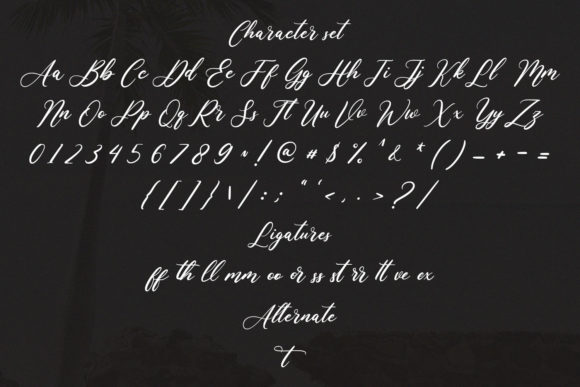 Character set
Aa Bb Cc Dd Ee Ff Gg Hh Ii Jj Kk Ll Mm
Nn Oo Pp Qq Rr Ss Tt Uu Vv Ww Xx Yy Zz
0 1 2 3 4 5 6 7 8 9 ~ ! @ # $ % ^ & * ( ) _ + - =
{ [ ] } \ / : ; " ' < , . > ? /
Ligatures
ff th ll mm oo or ss st rr tt ve ex
Alternate
t